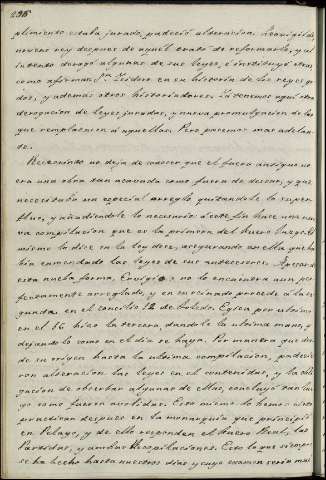 236
plimiento estaba jurado, padeció alteracion. Leovigildo
nuevas rey despues de aquél trató de reformarlo, y al
intento derogó algunas de sus leyes, è instituyó otras,
como afirma Sn. Isidoro en su historia de los reyes go-
dos, y además otros historiadores. Ya tenemos aquí otra
derogacion de leyes juradas, y nueva promulgacion de las
que remplacen à aquellas. Pero pasemos mas adelan-
te.
Recesvindo no deja de conocer que el fuero antiguo no
era una obra tan acavada como fuera de desear, y que
necesitaba un especial arreglo quitandole lo super-
fluo, y añadiendole lo necesario à este fin hace una nue-
va compilacion que es la primera del fuero Juzgo. El
mismo lo dice en la ley doce, asegurando en ella que ha-
bia enmendado las leyes de sus antecesores. Apesar de
esta nueva forma, Ervigio no lo encuentra aun per-
fectamente arreglado, y en su reinado procede à la se-
gunda en el concilio 12 de toledo. Egica por ultimo
en el 16 hizo la tercera dandole la ultima mano, y
dejandolo como en el dia se haya. Por manera que des-
de su origen hasta la ultima compilacion, padecie-
ron alteracion las leyes en el contenidas, y la obli-
gacion de observar algunas de ellas, concluyó tan lue-
go como fueron abolidas. Esto mismo lo hemos visto
practicar despues en la monarquia que principió
en Pelayo, y de ello responden el Fuero Real, las
Partidas, y ambas Recopilaciones. Esto lo que siempre
se ha hecho hasta nuestros dias y cuyo examen sería mui